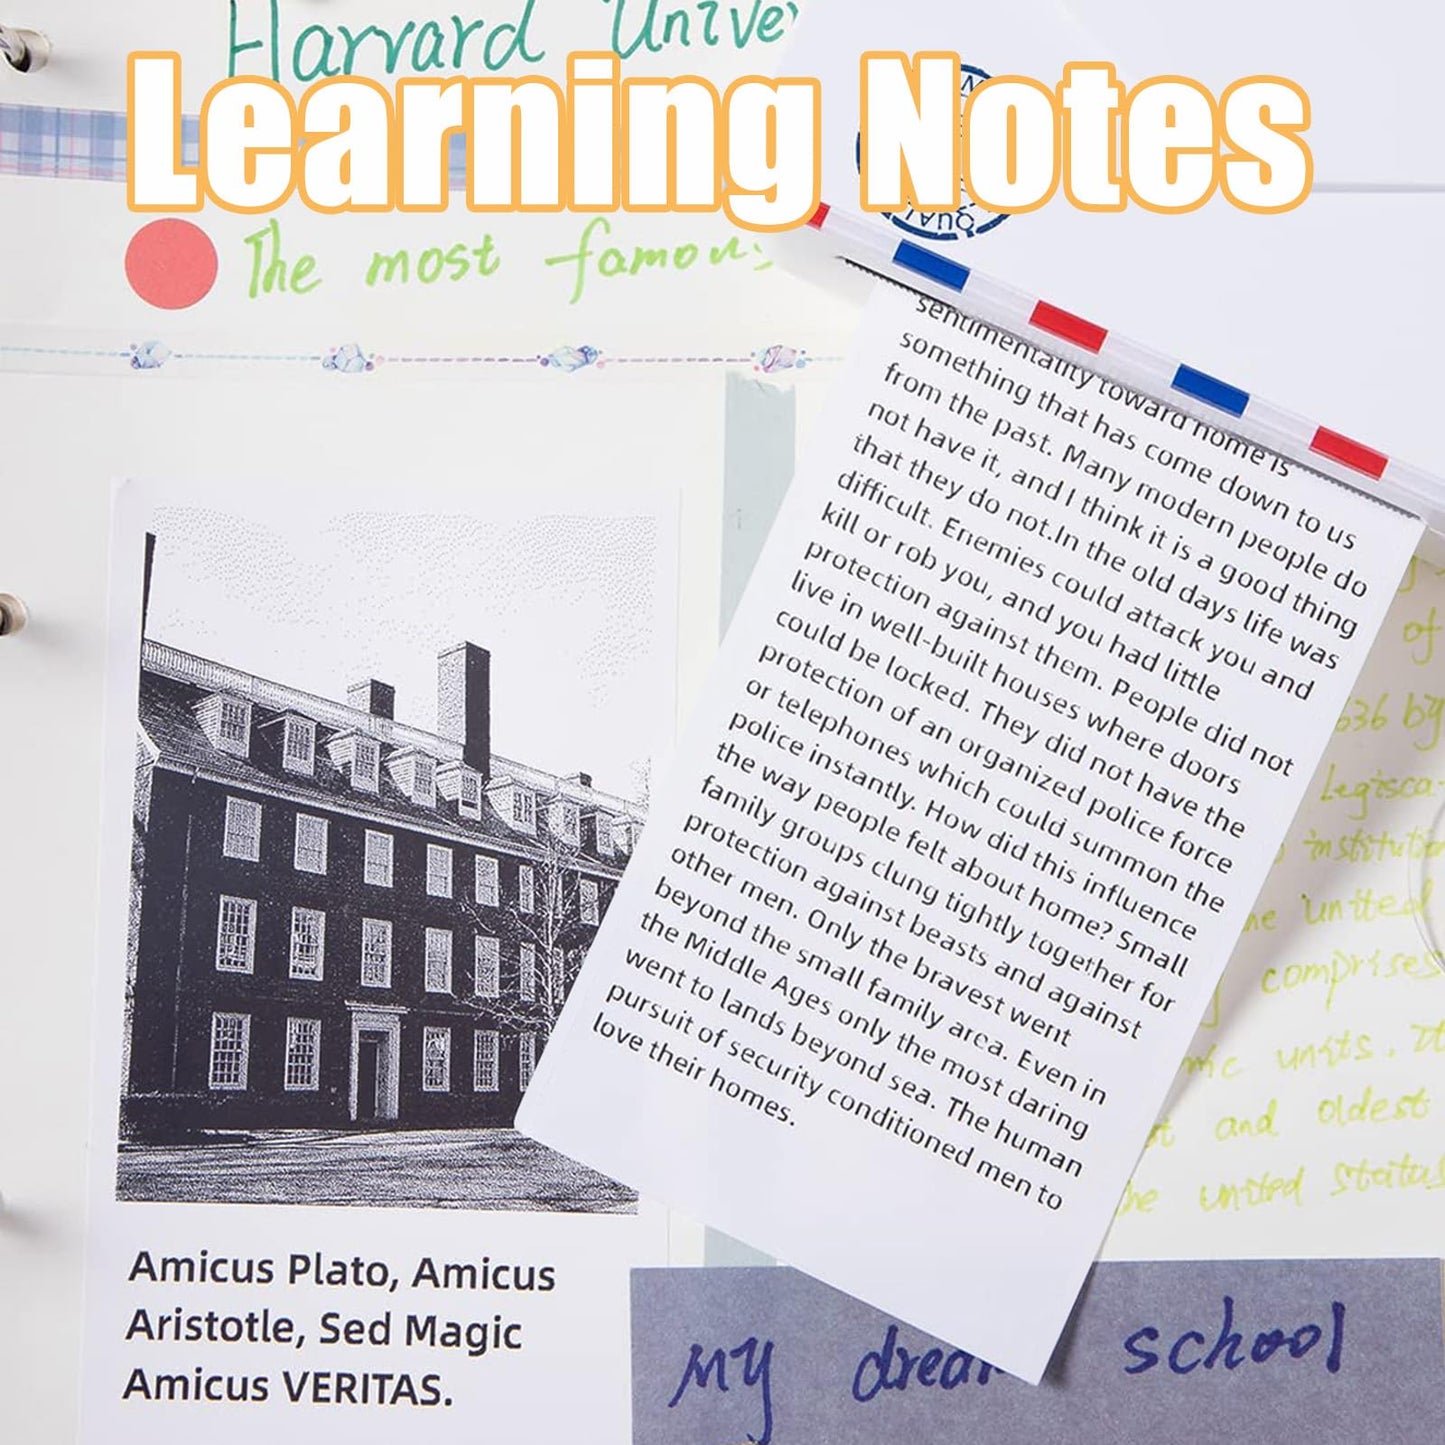 Harvard
Learning Notes
QUAL
The most famous
sentimentality toward home is
something that has come down to us
from the past. Many modern people do
not have it, and I think it is a good thing
that they do not.In the old days life was
difficult. Enemies could attack you and
kill or rob you, and you had little
protection against them. People did not
live in well-built houses where doors
could be locked. They did not have the
protection of an organized police force
or telephones which could summon the
police instantly. How did this influence
the way people felt about home? Small
family groups clung tightly together for
protection against beasts and against
other men. Only the bravest went
beyond the small family area. Even in
the Middle Ages only the most daring
went to lands beyond sea. The human
pursuit of security conditioned men to
love their homes.
Amicus Plato, Amicus
Aristotle, Sed Magic
Amicus VERITAS.
of
636 by
Legisca
institution
united
comprises
units. It
and oldest
the united status
My dream school